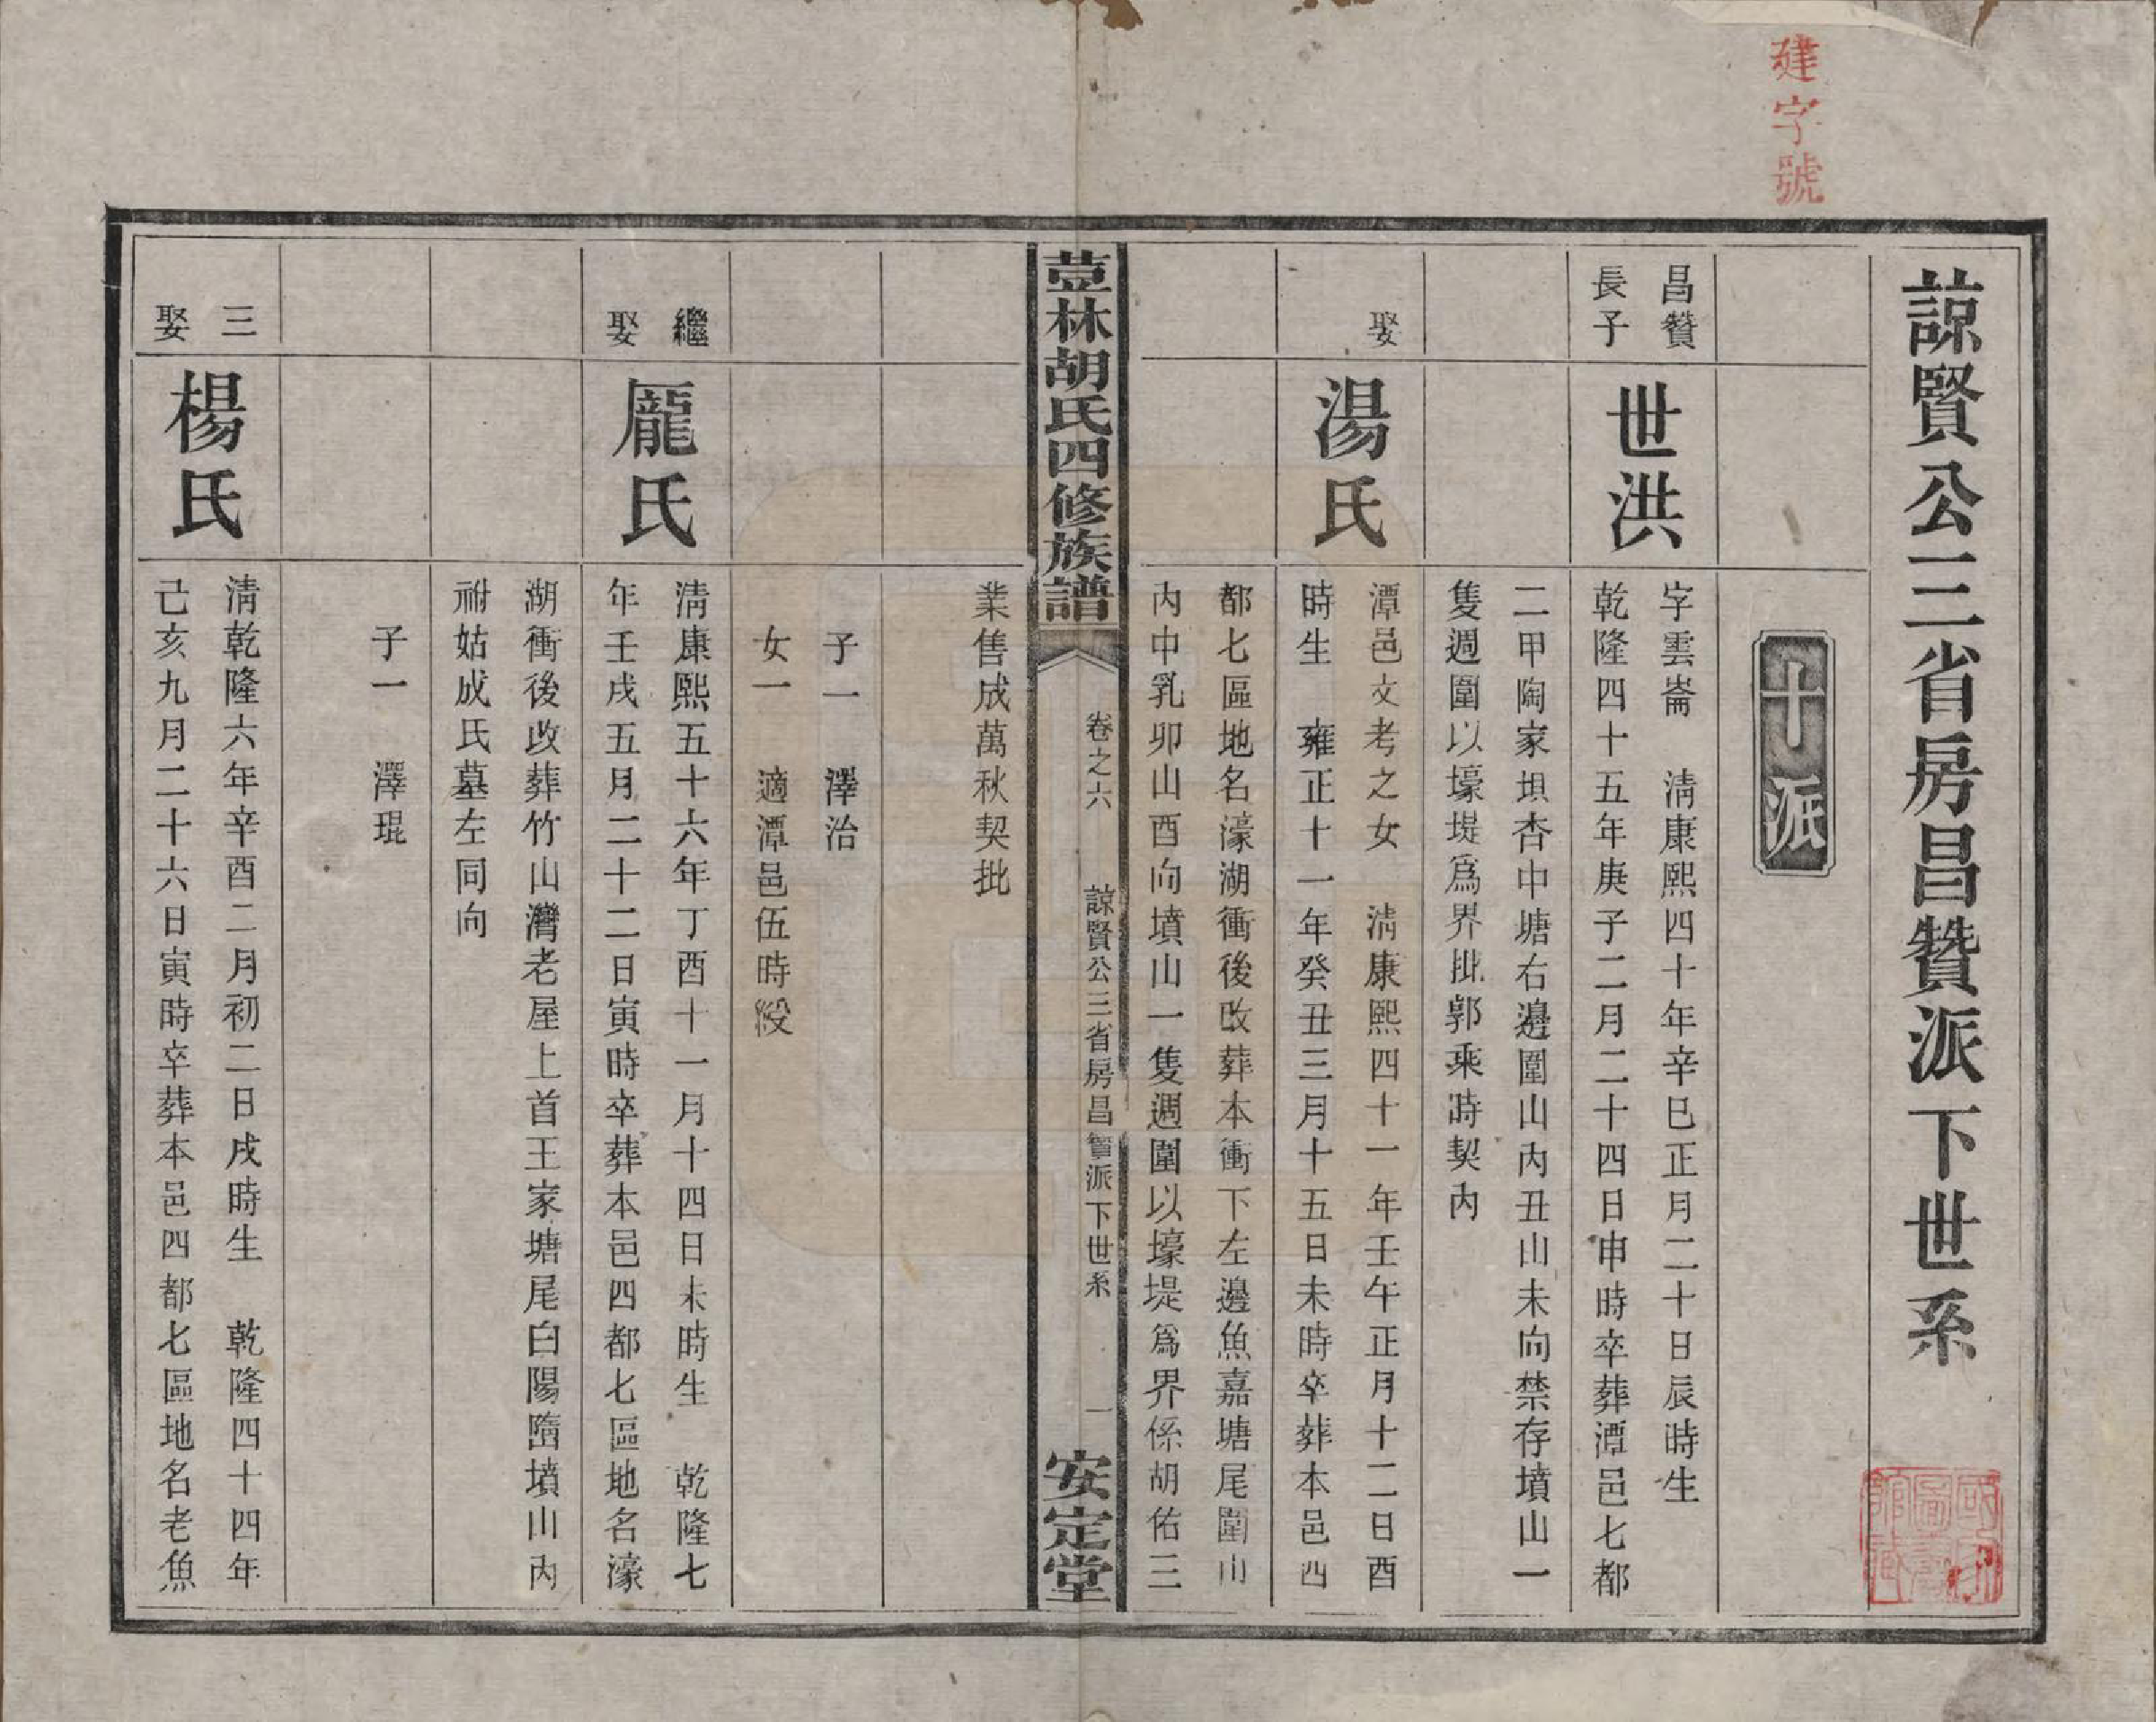 建字號
諒賢公三省房昌贊派下世系
十派
昌贊
長子
世洪
字雲崙　清康熙四十年辛巳正月二十日辰時生
乾隆四十五年庚子二月二十四日申時卒葬潭邑七都
二甲陶家垻杏中塘右邊圍山內丑山未向禁存墳山一
隻週圍以壕堤爲界批郭乘時契內
娶
湯氏
潭邑文考之女　清康熙四十一年壬午正月十二日酉
時生　雍正十一年癸丑三月十五日未時卒葬本邑四
都七區地名濠湖衝後改葬本衝下左邊魚嘉塘尾圍山
內中乳卯山酉向墳山一隻週圍以壕堤爲界係胡佑三
荳林胡氏四修族譜
卷之六
諒賢公三省房昌贊派下世系
一
安定堂
業售成萬秋契批
子一　澤治
女一　適潭邑伍時綬
繼
娶
龎氏
清康熙五十六年丁酉十一月十四日未時生　乾隆七
年壬戌五月二十二日寅時卒葬本邑四都七區地名濠
湖衝後改葬竹山灣老屋上首王家塘尾白陽嶝墳山內
祔姑成氏墓左同向
子一　澤琨
三
娶
楊氏
清乾隆六年辛酉二月初二日戌時生　乾隆四十四年
己亥九月二十六日寅時卒葬本邑四都七區地名老魚